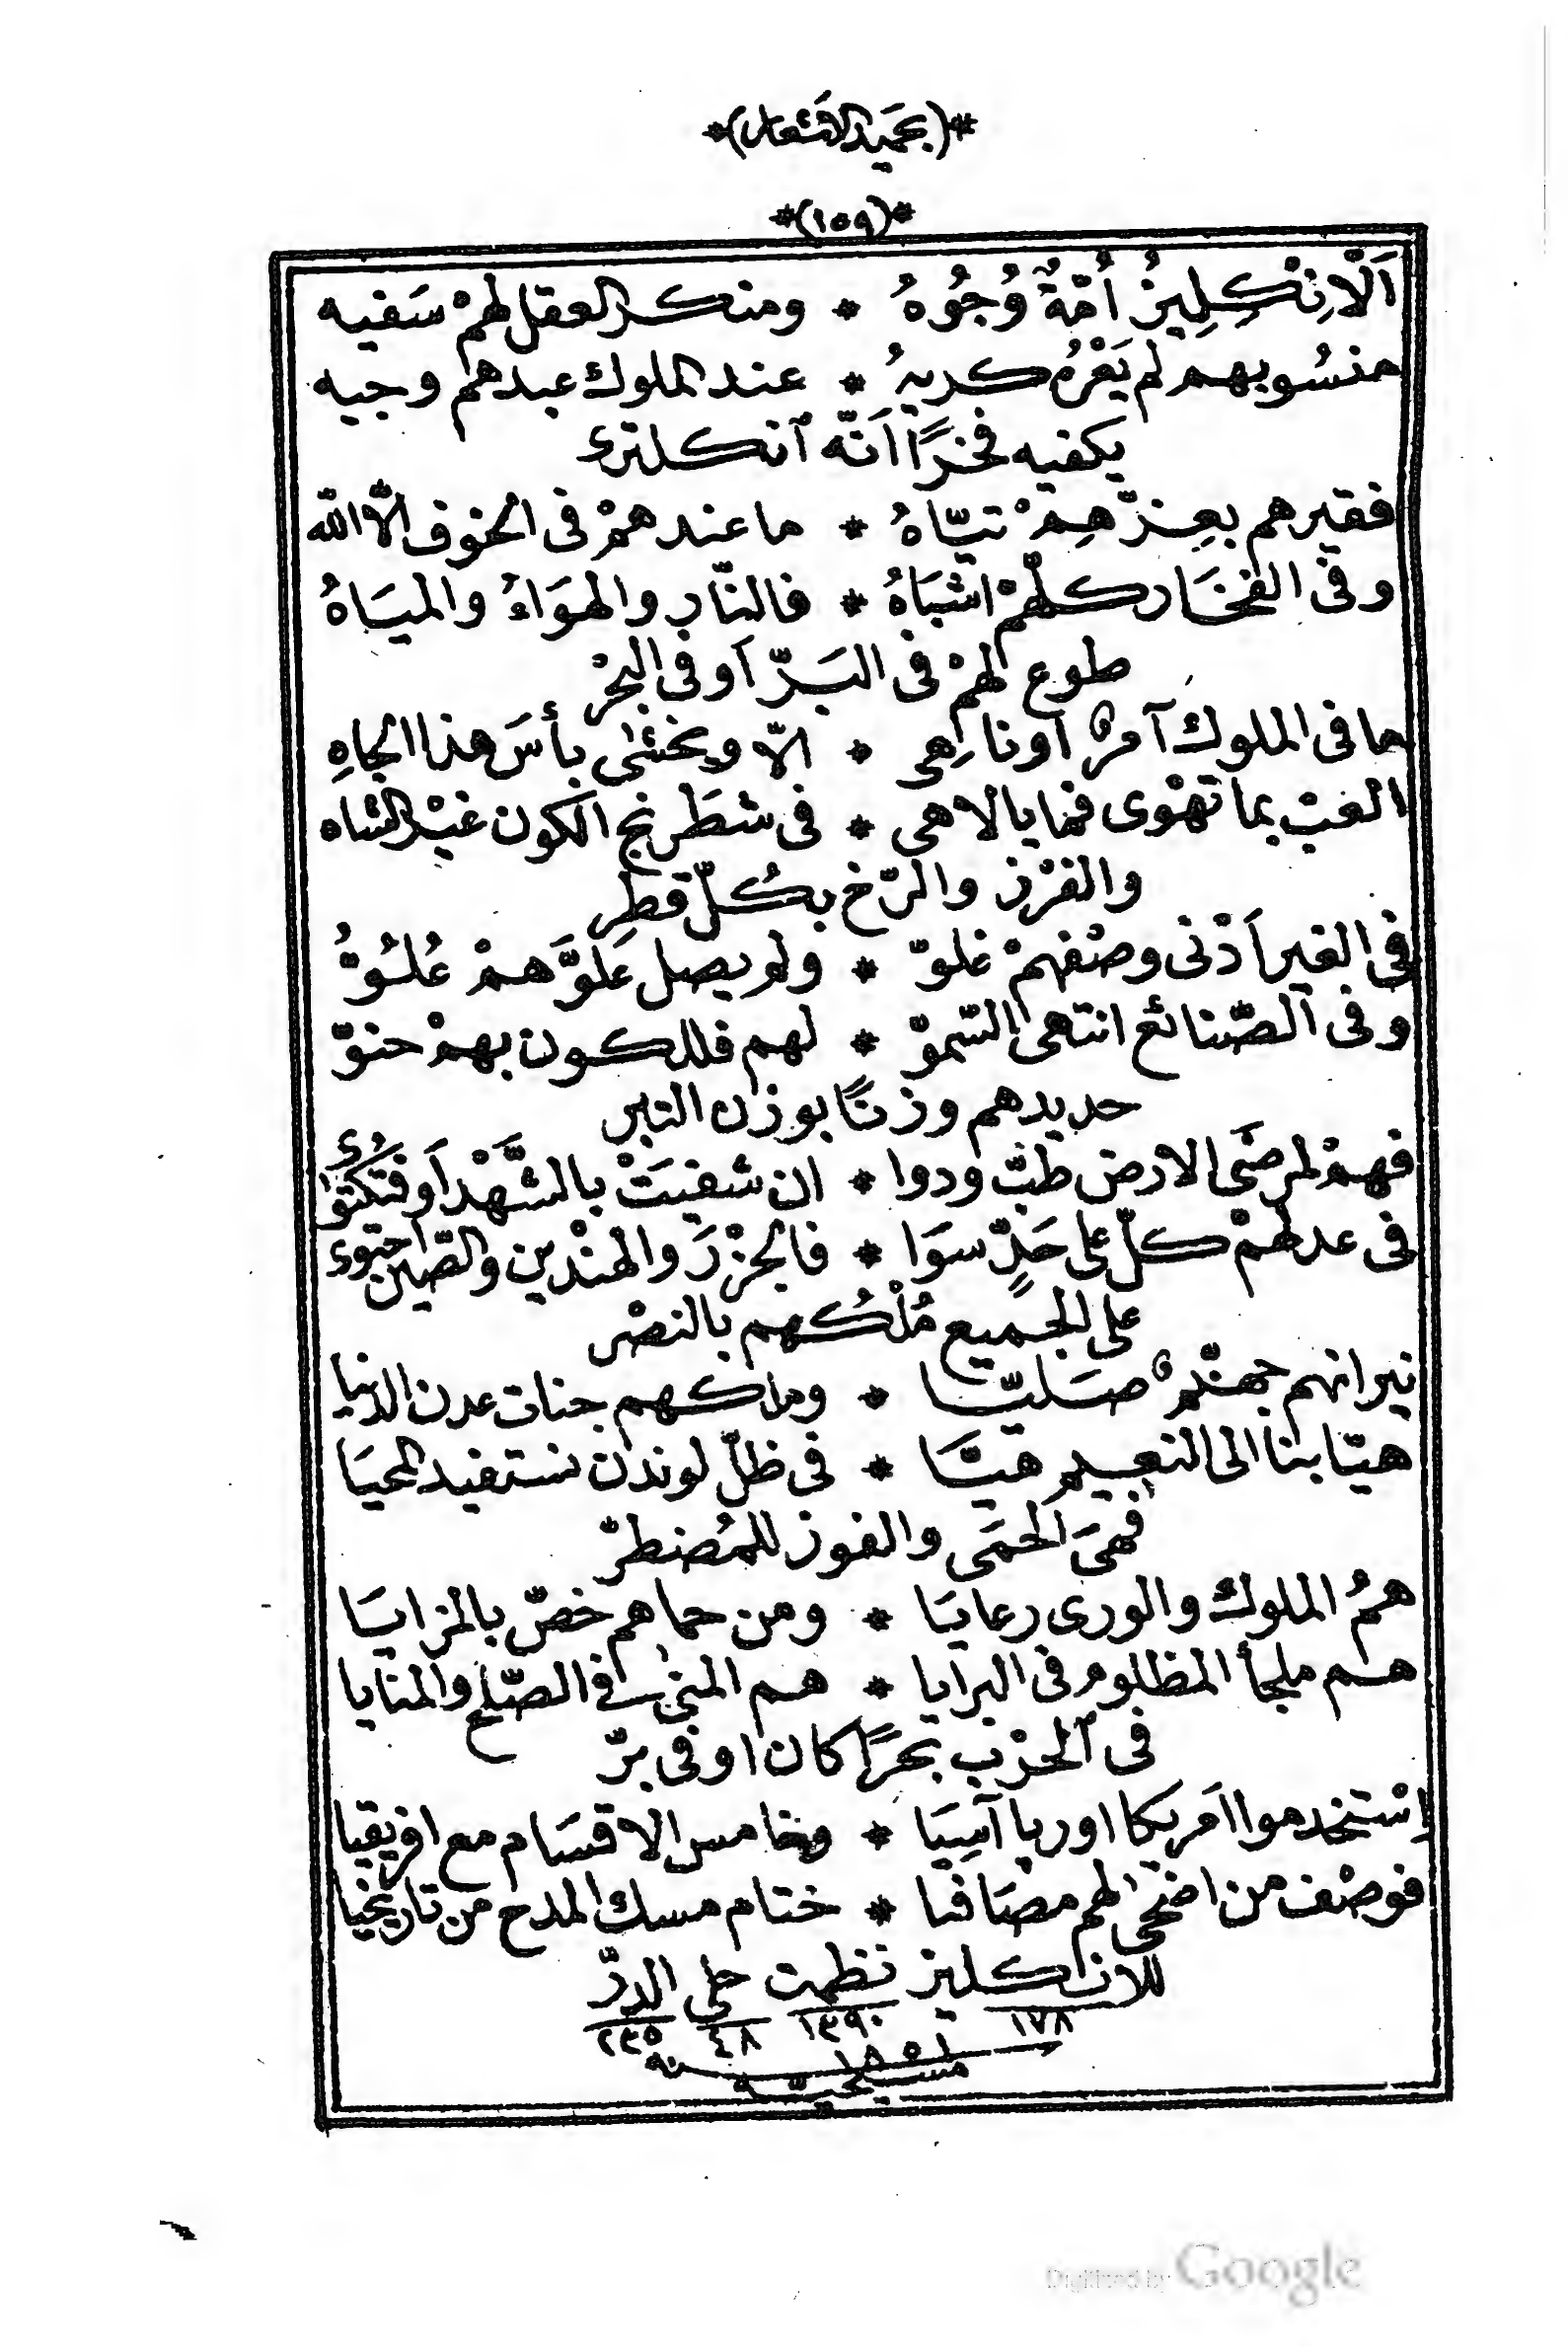 *(بحميد الاشعار)*
*(١٥٩)*
اَلْاِنْكِلِيزُ اُمَّةٌ وُجُوهُ * ومنكر العقل لهمْ سَفيه
منسُوبهم لم يَعْرُه كريهُ * عند الملوك عبدهم وجيه
يكفيه فخرًا اَنّه آنكلترى
فقيرهم بعِزّهِمْ تيّاهُ * ما عندهمْ فى الخوف الّا الله
وفى الفخَار كلّهمْ اشبَاهُ * فالنّار والهوَاءُ والميَاهُ
طوع لهمْ فى البَرّ اَو فى البحْر
ما فى الملوك آمرٌ اَو ناهِى * الّا ويخشٰى بأسَ هذا الجاهِ
العبْ بما تهْوى فما يا لاهى * فى شطَرنج الكون غيْر الشاه
والفرْز والرّخ بكُلّ قطرِ
فى الغير اَدْنى وصْفهمْ غلوّ * ولم يصل علوَّهمْ عُلُوُّ
وفى الصّنائع انتهى السّموّ * لهم فللكون بهمْ حنوّ
حديدهم وزنًا بوزن التبر
فهمْ لمرضَى الارض طبّ ودوا * ان شفيَتْ بالشَّهْد اَو فتُكتَوٰى
فى عدلهمْ كلّ على حَدٍّ سوَا * فالجزْرَ والهنْدين والصّين احتوى
على الجميع مُلْكُهم بالنصْر
نيرانهم جهنّمٌ صَليّا * وملكهم جنات عدن الدنيا
هيّا بنا الى النعيم هيَّا * فى ظلّ لوندن نستفيد المحيَا
فهىَ الحمَى والفوز للمُضطرّ
همُ الملوك والورى رعايَا * ومن حماهم خصّ بالمزايَا
هم ملجأ المظلوم فى البرايا * هم المنى فى الصّلح والمنايا
فى الحرْب بحرًا كان او فى برّ
اِسْتخدموا اَمريكا اوربا آسِيَا * وخامس الاقسَام مع افريقيا
فوصْف من اضحى لهم مصَافيا * ختام مسك المدح من تاريخيا
للانكليز نظمت حلى الدرّ
١٧٨ ١٣٩٠ ٤٨ ٢٣٥
سنه ١٨٥١ مسيحيّه
Digitized by Google